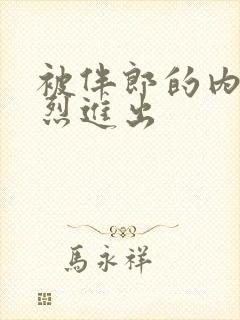 被伴郎的内
烈进出
馬永祥